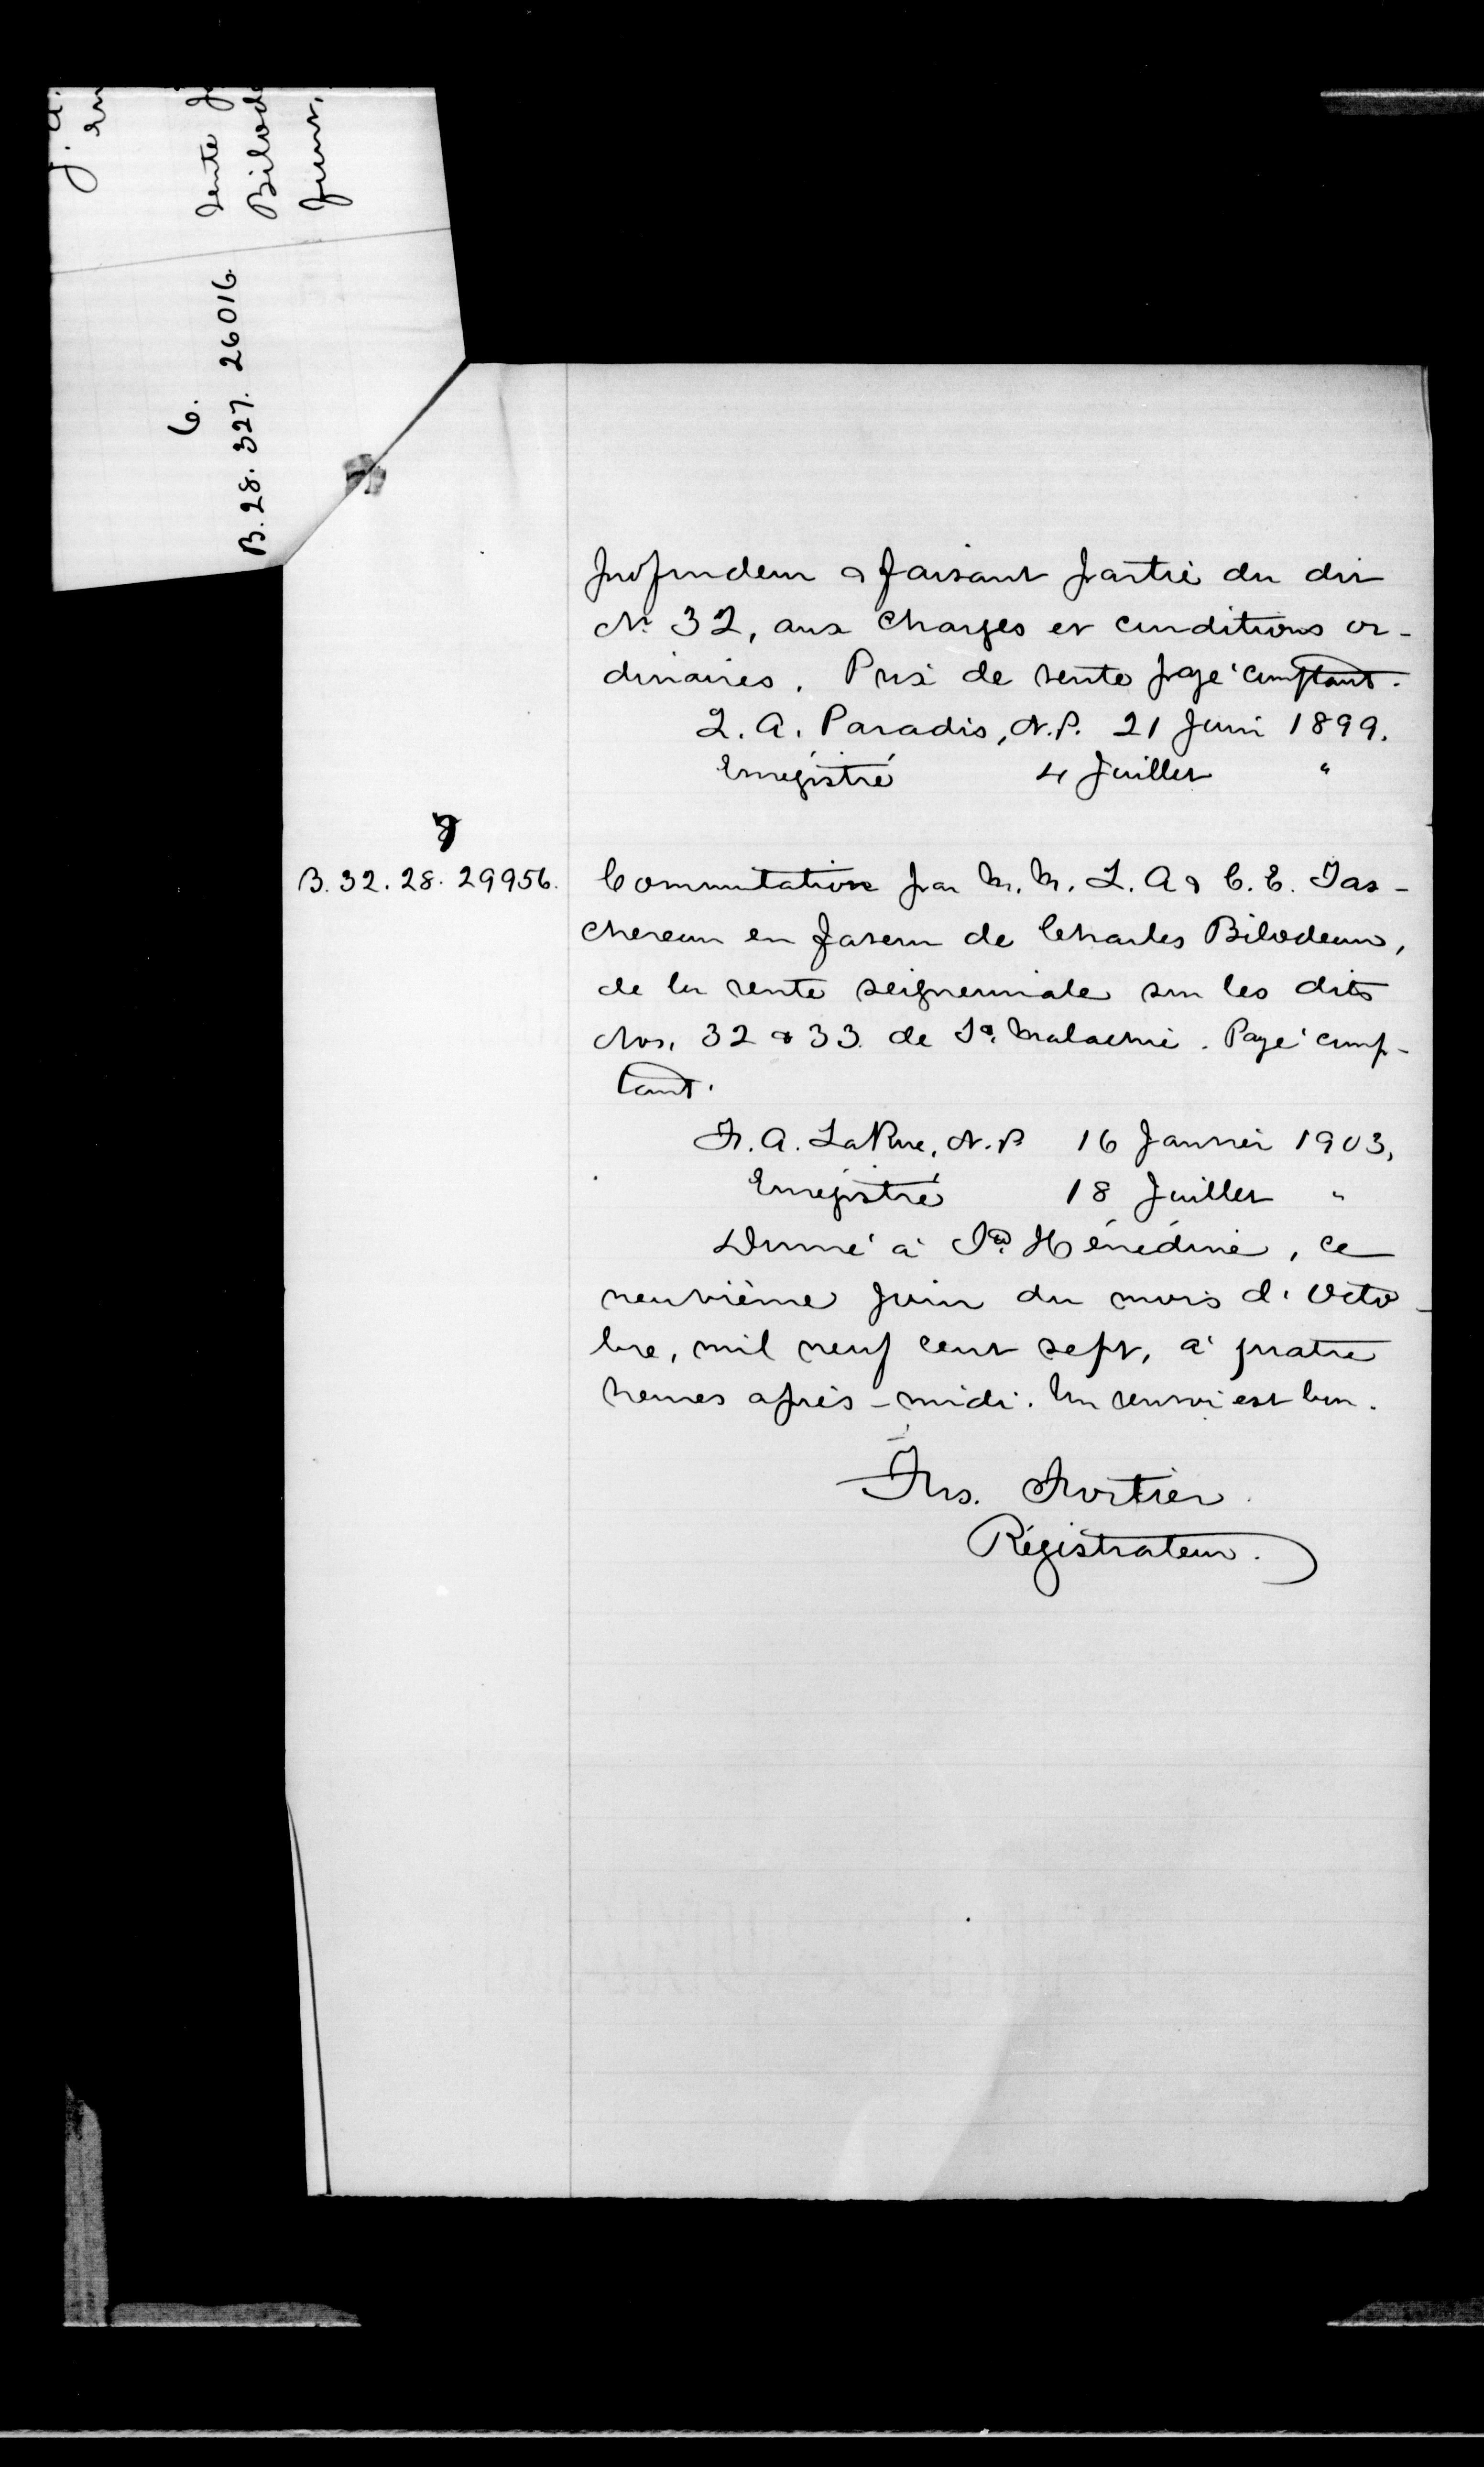 J. A.
En
6.
B. 28. 327. 26016.
Vente
Bilode
profondeur & faisant partie du dit
No 32, aux charges et conditions or-
dinaires. Prix de vente payé comptant.
L. A. Paradis, N.P. 21 Juin 1899.
Enregistré 4 Juillet "
7
B. 32. 28. 29956.
Commutation par M. M. L. A & C. E. Tas-
chereau en faveur de Charles Bilodeau,
de la rente seigneuriale sur les dits
Nos. 32 & 33 de St. Malachie. Payé comp-
tant.
F. A. LaRue, N.P 16 Janvier 1903,
Enregistré 18 Juillet "
Donné à Ste. Hénédine, ce
neuvième jour du mois d'Octo-
bre, mil neuf cent sept, à quatre
heures après-midi. Un renvoi est bon.
Frs. Fortier
Régistrateur.